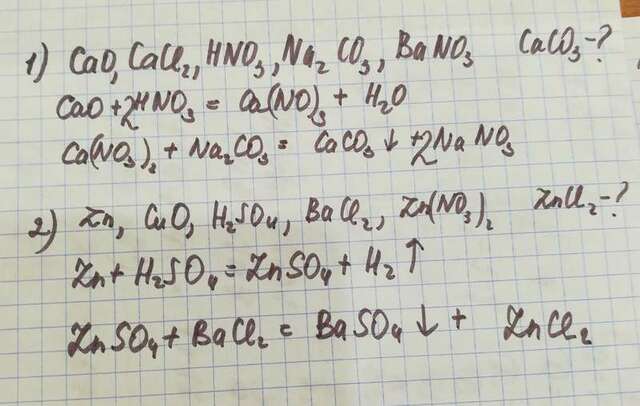 1) CaO, CaCl₂, HNO₃, Na₂CO₃, BaNO₃ CaCO₃-?
CaO+2HNO₃ = Ca(NO)₃ + H₂O
Ca(NO₃)₂ + Na₂CO₃ = CaCO₃↓ +2NaNO₃
2) Zn, CuO, H₂SO₄, BaCl₂, Zn(NO₃)₂ ZnCl₂-?
Zn + H₂SO₄ = ZnSO₄ + H₂↑
ZnSO₄ + BaCl₂ = BaSO₄↓ + ZnCl₂